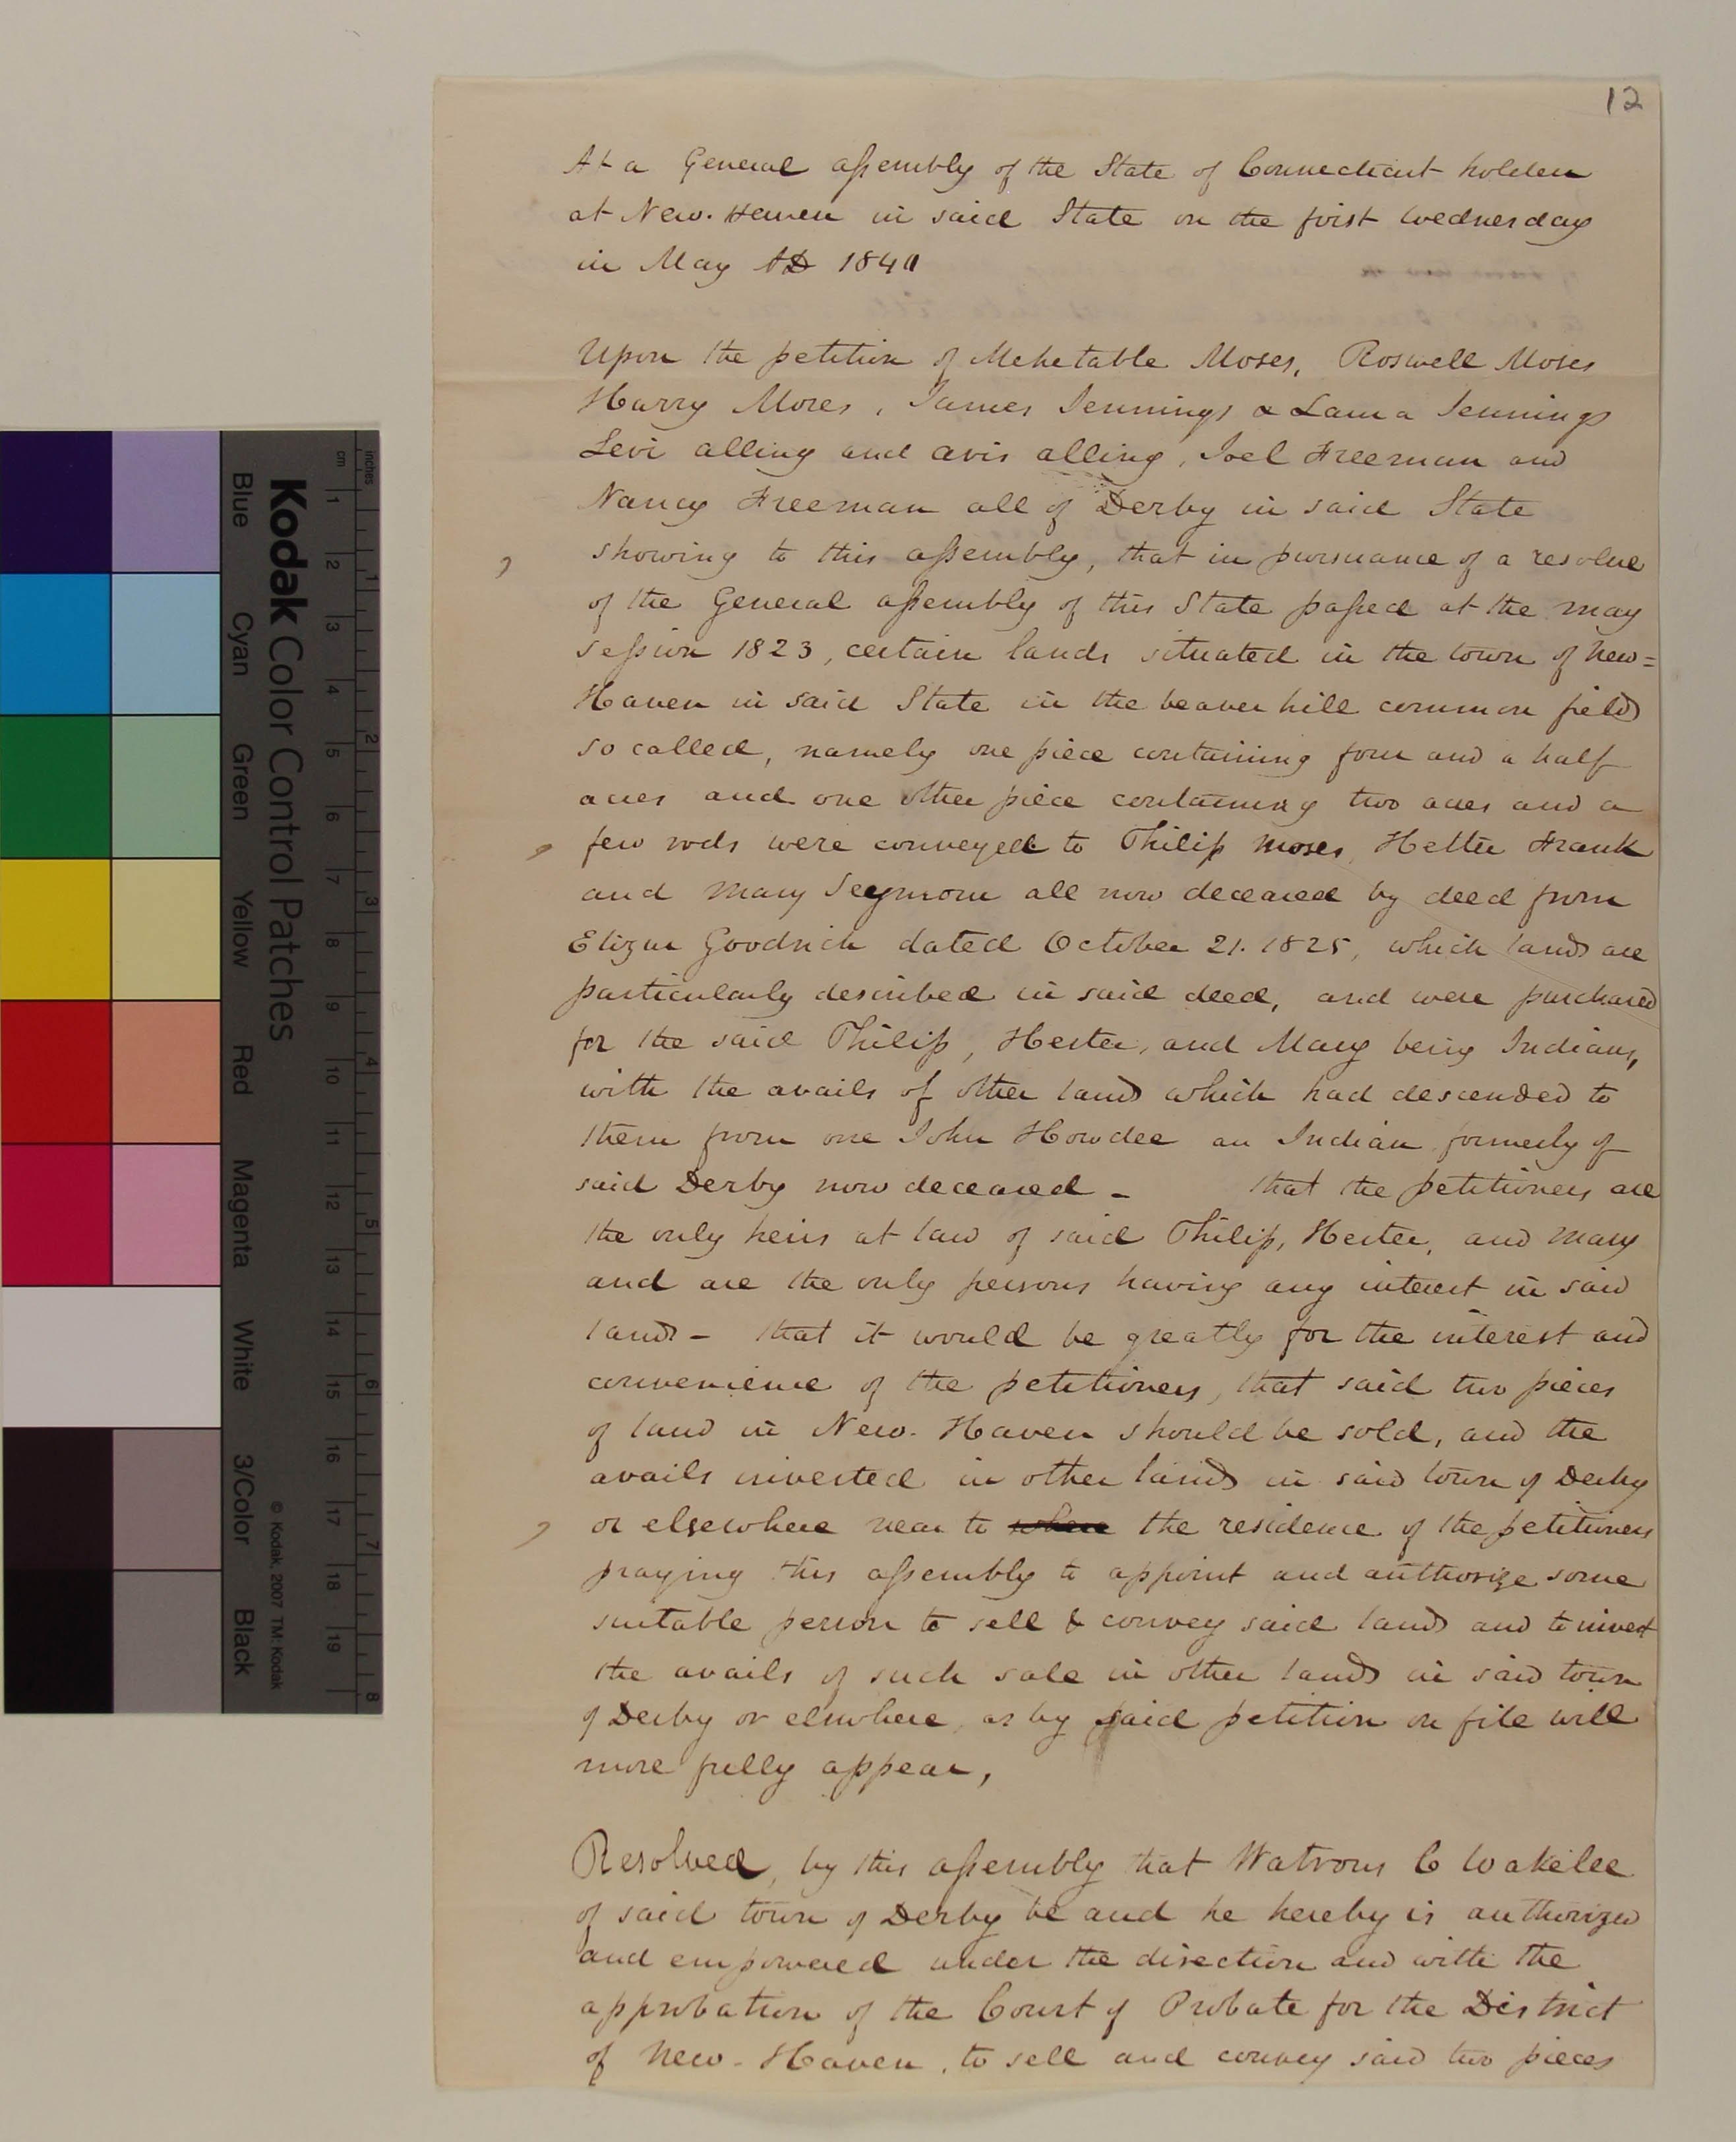 12
At a General assembly of the State of Connecticut holden
at New-Haven in said State on the first Wednesday
in May AD 1840
Upon the petition of Mehetable Moses, Roswell Moses
Harry Moses, James Jennings & Laura Jennings
Levi alling and avis alling, Joel Freeman and
Nancy Freeman all of Derby in said State
showing to this assembly, that in pursuance of a resolve
of the General assembly of this State passed at the may
session 1823, certain lands situated in the town of New=
Haven in said State in the beaver hill common field
so called, namely one piece containing four and a half
acres and one other piece containing two acres and a
few rods were conveyed to Philip Moses, Hester Frank
and Mary Seymour all now deceased by deed from
Elizur Goodrich dated October 21. 1825, which lands are
particularly described in said deed, and were purchased
for the said Philip, Hester, and Mary being Indians,
with the avails of other lands which had descended to
them from one John Howdee an Indian formerly of
said Derby now deceased - that the petitioners are
the only heirs at law of said Philip, Hester, and Mary
and are the only persons having any interest in said
lands - that it would be greatly for the interest and
convenience of the petitioners, that said two pieces
of land in New-Haven should be sold, and the
avails invested in other lands in said town of Derby
or elsewhere near to where the residence of the petitioners
praying this assembly to appoint and authorize some
suitable person to sell & convey said lands and to invest
the avails of such sale in other lands in said town
of Derby or elsewhere, as by said petition on file will
more fully appear,
Resolved, by this assembly that Watrous C Wakelee
of said town of Derby be and he hereby is authorized
and empowered under the direction and with the
approbation of the Court of Probate for the District
of New-Haven, to sell and convey said two pieces
Kodak Color Control Patches
© Kodak, 2007 TM: Kodak
Blue Cyan Green Yellow Red Magenta White 3/Color Black
inches 1 2 3 4 5 6 7 8
cm 1 2 3 4 5 6 7 8 9 10 11 12 13 14 15 16 17 18 19